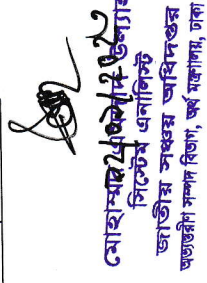 মোহাম্মদ
সিস্টেম এনালিস্ট
জাতীয় সঞ্চয় অধিদপ্তর
অভ্যন্তরীণ সম্পদ বিভাগ, অর্থ মন্ত্রণালয়, ঢাকা